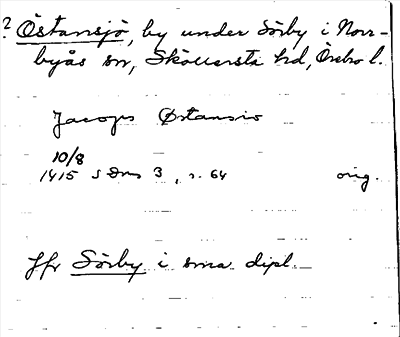 ? Östansjö, by under Sörby i Norr-
byås sn, SkölIersta hd, Örebro l.
Jacops Østansio
10/8
1415 SDns 3, s. 64 orig.
Jfr Sörby i sma dipl.